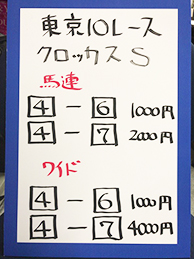 東京10レース
クロッカスS
馬連
4-6 1000円
4-7 2000円
ワイド
4-6 1000円
4-7 4000円